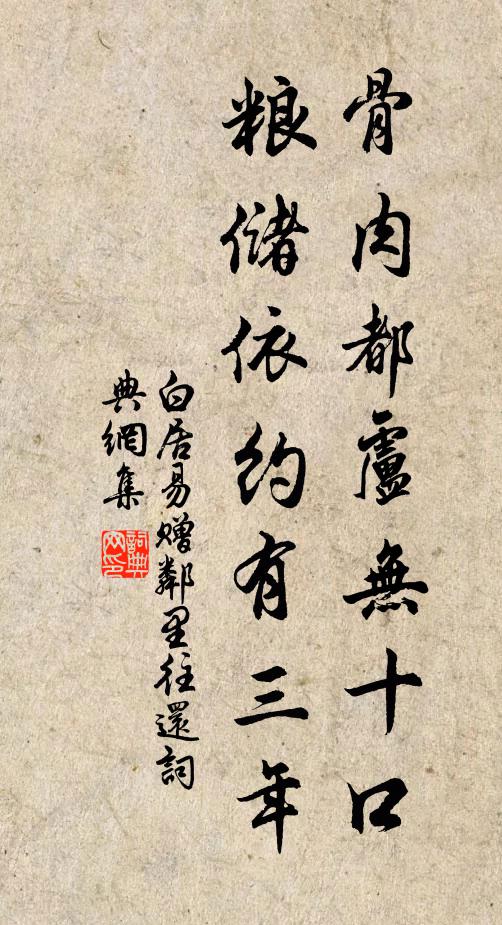 骨肉都盧無十口
粮儲依約有三年
白居易贈鄰里往還詞
典網集
詞典网印